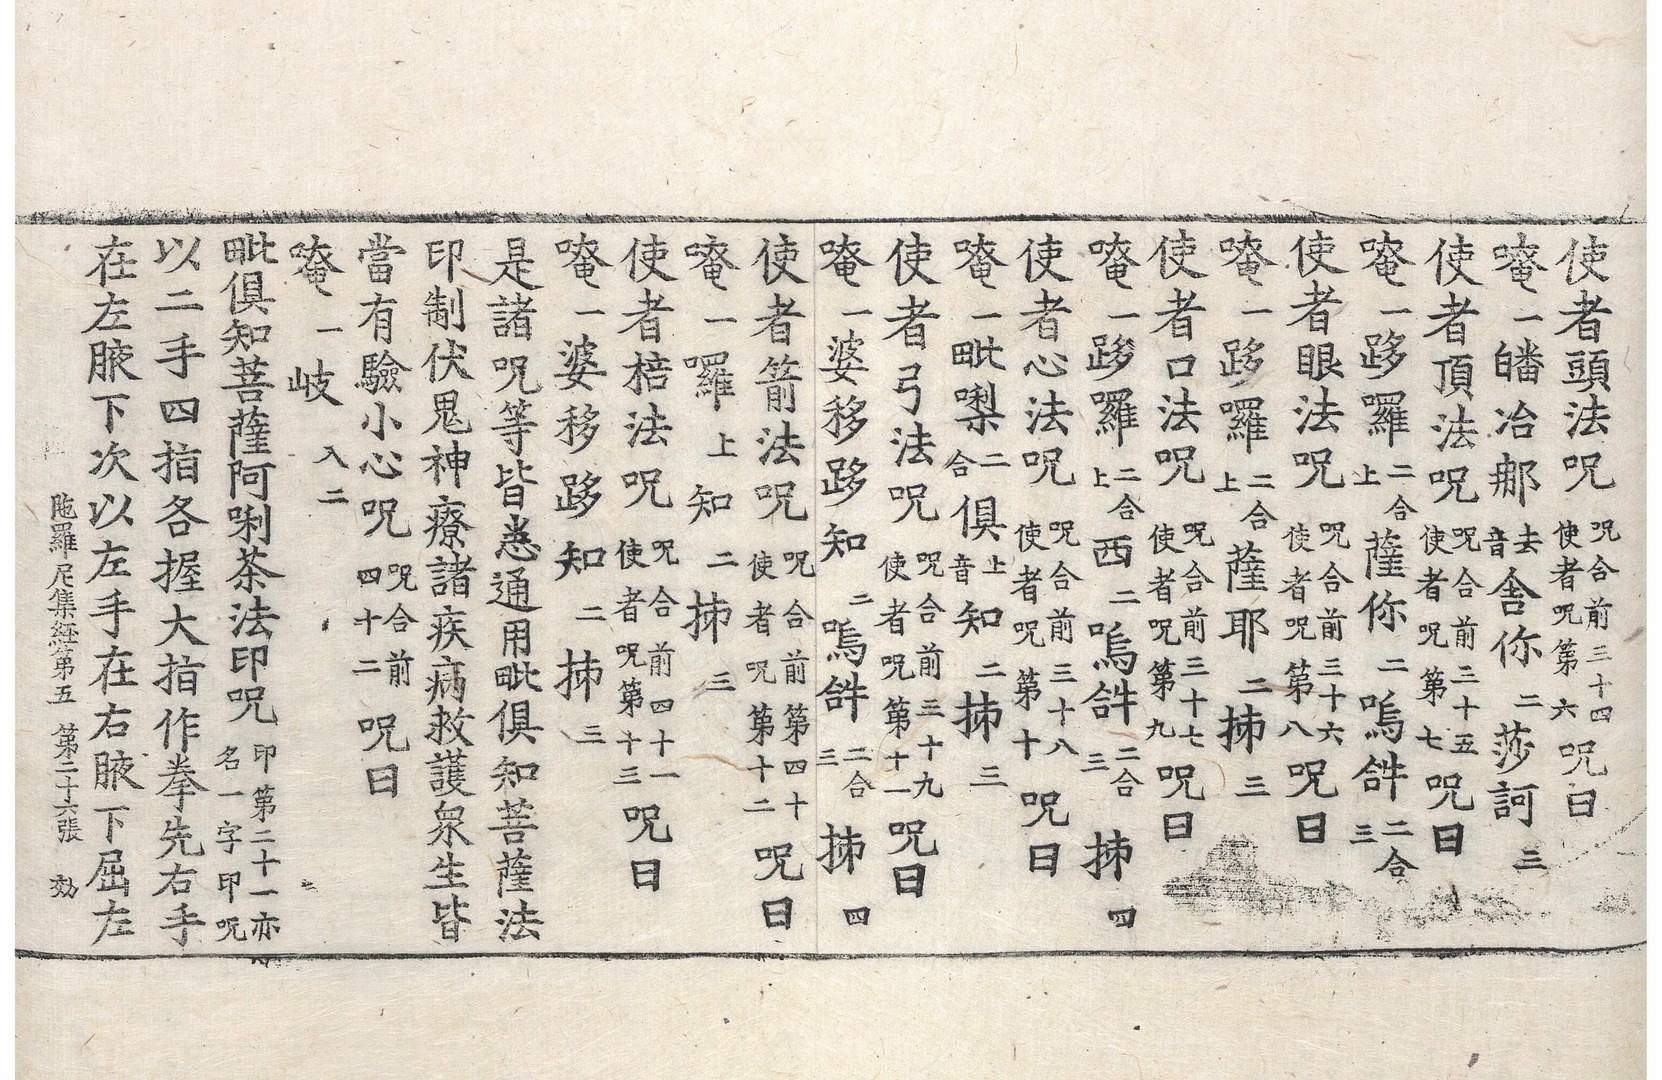 使者頭法呪呪合前三十四使者呪第六呪曰
唵一皤冶那去音舍你二莎訶三
使者頂法呪呪合前三十五使者呪第七呪曰
唵一跢囉二合上薩你二嗚𤙖二合三
使者眼法呪呪合前三十六使者呪第八呪曰
唵一跢囉二合上薩耶二㧊三
使者口法呪呪合前三十七使者呪第九呪曰
唵一跢囉二合上西二嗚𤙖二合三㧊四
使者心法呪呪合前三十八使者呪第十呪曰
唵一毗㗚二合俱上音知二㧊三
使者弓法呪呪合前三十九使者呪第十一呪曰
唵一婆移跢知二嗚𤙖二合三㧊四
使者箭法呪呪合前第四十使者呪第十二呪曰
唵一囉上知二㧊三
使者棓法呪呪合前四十一使者呪第十三呪曰
唵一婆移跢知二㧊三
是諸呪等皆悉通用毗俱知菩薩法
印制伏鬼神療諸疾病救護衆生皆
當有驗小心呪呪合前四十二呪曰
唵一岐入二
毗俱知菩薩阿唎茶法印呪印第二十一亦名一字印呪
以二手四指各握大指作拳先右手
在左腋下次以左手在右腋下屈左
陁羅尼集経第五 第二十六張 効